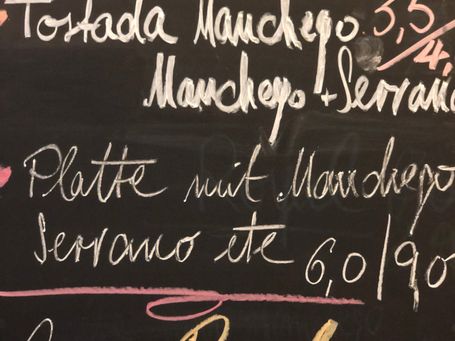 Tostada Manchego 3,5/4,
Manchego + Serrano
Platte mit Manchego
Serrano etc 6,0/90